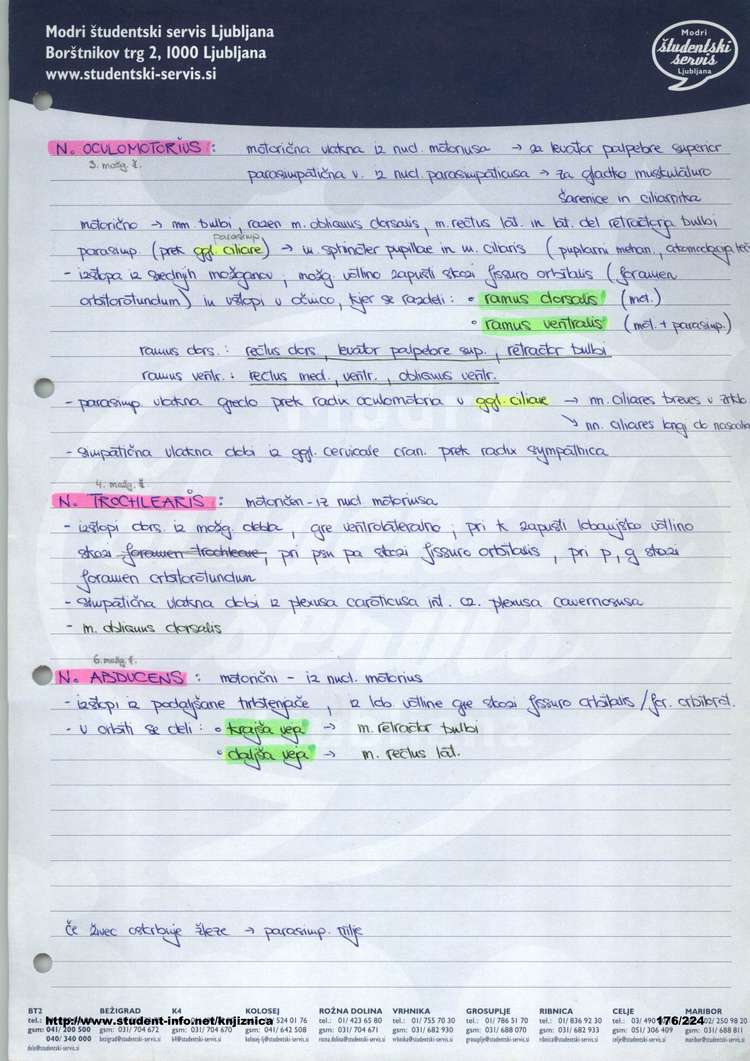 Modri študentski servis Ljubljana
Borštnikov trg 2, 1000 Ljubljana
www.studentski-servis.si
Modri
študentski
servis
Ljubljana
N. OCULOMOTORIUS: motorična vlakna iz nucl. motoriusa → za levator palpebre superior
3. možg. ž.
parasimpatična v. iz nucl. parasimpaticusa → za gladko muskulaturo
šarenice in ciliarnika
motorično → mm. bulbi, razen m. obliquus dorsalis, m. rectus lat. in lat. del retractorja bulbi
parasimp.
parasimp (prek ggl ciliare) → m. sphincter pupillae in m. ciliaris (pupilarni mehan., akomodacija
- izstopa iz srednjih možganov, možg. votlino zapusti skozi fissuro orbitalis (foramen
orbitorotundum) in vstopi v očnico, kjer se razdeli: ∘ ramus dorsalis (mot.)
∘ ramus ventralis (mot. + parasimp.)
ramus dors.: rectus dors, levator palpebre sup., retractor bulbi
ramus ventr.: rectus med., ventr., obliquus ventr.
- parasimp. vlakna gredo prek radix oculomotoria v ggl. ciliare → nn. ciliares breves v zrklo
↘ nn. ciliares longi do
- simpatična vlakna dobi iz ggl. cervicale cran. prek radix sympathica
4. možg. ž.
N. TROCHLEARIS: motoričen - iz nucl. motoriusa
- izstopi dors. iz možg. debla, gre ventrolateralno, pri k zapusti lobanjsko votlino
skozi foramen trochleare, pri psu pa skozi fissuro orbitalis, pri p, g skozi
foramen orbitorotundum
- simpatična vlakna dobi iz plexusa caroticusa int. oz. plexusa cavernosusa
- m. obliquus dorsalis
6. možg. ž.
N. ABDUCENS: motorični - iz nucl. motorius
- izstopi iz podaljšane hrbtenjače, iz lob. votline gre skozi fissuro orbitalis / for. orbitorot.
- v orbiti se deli: ∘ krajša veja → m. retractor bulbi
∘ daljša veja → m. rectus lat.
Če živec oskrbuje žleze → parasimp. nitje
BT2 BEŽIGRAD K4 KOLOSEJ ROŽNA DOLINA VRHNIKA GROSUPLJE RIBNICA CELJE MARIBOR
tel.: http://www.student-info.net/knjiznica 524 01 76 tel.: 01/ 423 65 80 tel.: 01/ 755 70 30 tel.: 01/ 786 51 70 tel.: 01/ 836 92 30 tel.: 03/ 490 176/224 02/ 250 98 20
gsm: 041/ 200 500 gsm: 031/ 704 672 gsm: 031/ 704 670 gsm: 041/ 642 508 gsm: 031/ 704 671 gsm: 031/ 682 930 gsm: 031/ 688 070 gsm: 031/ 682 933 gsm: 051/ 306 409 gsm: 031/ 688 811
040/ 340 000